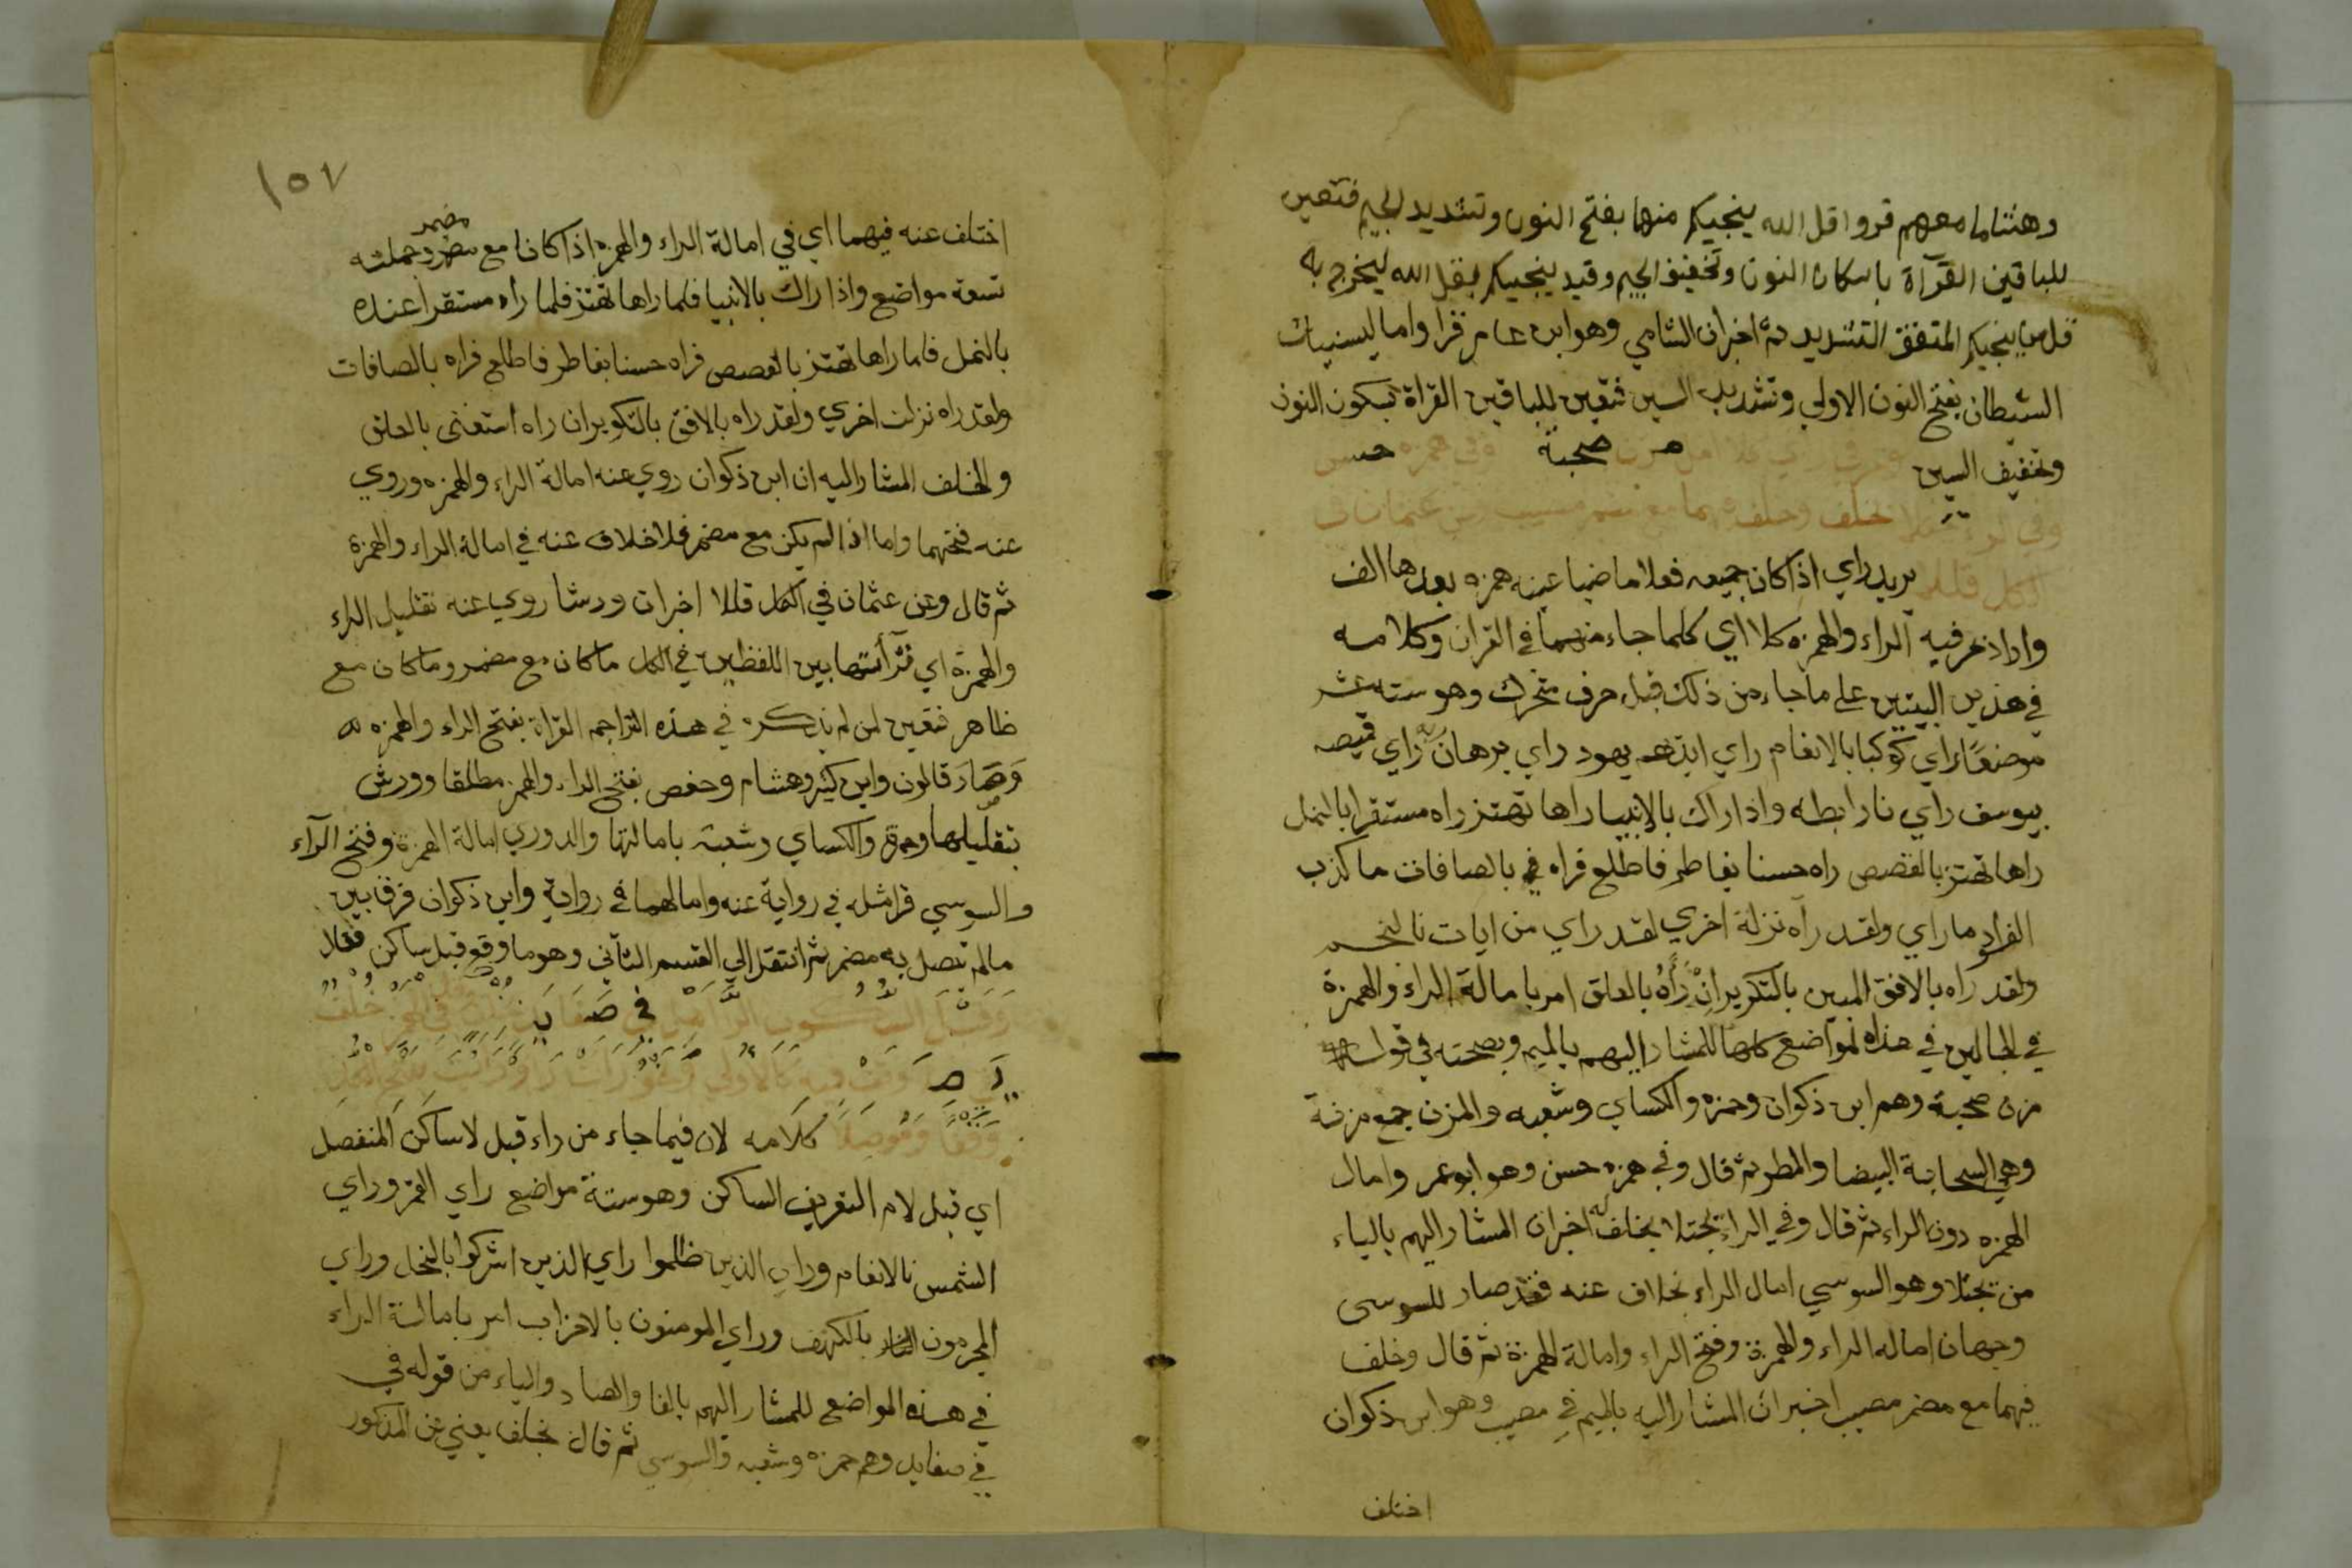 وهشاما معهم قروا قل الله ينجيكم منها بفتح النون وتشديد الجيم فتعين
للباقين القرآة باسكان النون وتخفيف الجيم وقيد ينجيكم بقل الله ليخرج به
قل من ينجيكم المتفق التشديد ثم اخبر ان الشامي وهو ابن عامر قرا واما ينسينك
الشيطان بفتح النون الاولي وتشديد السين فتعين للباقين القراة بسكون النون
وتخفيف السين وحرفي راي كلا امل مزن صحبة وفي همزه حسن
وفي الراء يجتلا بخلف وخلف فيهما مع مضمر مصيب وعن عثمان في
الكل قللا يريد راي اذا كان جميعه فعلا ماضيا عينه همزه بعدها الف
واراد بحرفيه الراء والهمزه كلا اي كلما جاء منهما في القران وكلامه
في هذين البيتين علي ما جاء من ذلك قبل حرف متحرك وهو سته عشر
موضعا راي كوكبا بالانعام راي ايديهم بهود راي برهان ربه راي قميصه
بيوسف راي نارا بطه واذا راك بالانبيا راها تهتز راه مستقرا بالنمل
راها تهتز بالقصص راه حسنا بفاطر فاطلع فراه في بالصافات ما كذب
الفواد ما راي ولقد رآه نزلة اخري لقد راي من ايات بالنجم
ولقد راه بالافق المبين بالتكوير ان رأه بالعلق امر بامالة الراء والهمزة
في الحالين في هذه المواضع كلها للمشار اليهم بالميم وبصحبته في قوله
مزن صحبة وهم ابن ذكوان وحمزه والكساي وشعبه والمزن جمع مزنة
وهي السحابة البيضا والمطر ثم قال وفي همزه حسن وهو ابو عمر وامال
الهمزه دون الراء ثم قال وفي الراء يجتلا بخلف اخبر ان المشار اليهم بالياء
من يجتلا وهو السوسي امال الراء بخلاف عنه فقد صار للسوسي
وجهان اماله الراء والهمزة وفتح الراء وامالة الهمزة ثم قال وخلف
فيهما مع مضمر مصيب اخبر ان المشار اليه بالميم في مصيب وهو ابن ذكوان
اختلف
١٥٧
مضمر
اختلف عنه فيهما اي في امالة الراء والهمزه اذا كانا مع مضمر وجملته
تسعة مواضع واذا راك بالانبيا فلما راها تهتز فلما راه مستقرا عنده
بالنمل فلما راها تهتز بالقصص فراه حسنا بفاطر فاطلع فراه بالصافات
ولقد راه نزلت اخري ولقد راه بالافق بالتكوير ان راه استغنى بالعلق
والخلف المشار اليه ان ابن ذكوان روي عنه امالة الراء والهمزه وروي
عنه فتحهما واما اذا لم يكن مع مضمر فلا خلاف عنه في امالة الراء والهمزة
ثم قال وعن عثمان في الكل قللا اخبر ان ورشا روي عنه تقليل الراء
والهمزة اي قرأتها بين اللفظين في الكل ما كان مع مضمر وما كان مع
ظاهر فتعين لمن لم يذكره في هذه التراجم القراة بفتح الراء والهمزه
وصار قالون وابن كثير وهشام وحفص بفتح الراء والهمز مطلقا وورش
بتقليلها وحمزة والكساي وشعبة بامالتها والدوري امالة الهمزة وفتح الرآء
والسوسي قرا مثله في رواية عنه وامالهما في رواية وابن ذكوان فرق بين
مالم تتصل به مضمر ثم انتقل الي القسم الثاني وهو ما وقع قبل ساكن فقال
وَقَبْلَ السُّكُونِ الرَّا أَمِلْ فِي صَفَا يَدٍ بِخُلْفٍ وَقُلْ فِي الْهَمْزِ خُلْفٌ
يَقِي صِلَا وَقِفْ فِيهِ كَالْأُولَى وَنَحْوُ رَأَتْ رَأَوْا رَأَيْتَ بِفَتْحِ الْكُلِّ
وَقْفًا وَمَوْصِلَا كلامه لان فيما جاء من راء قبل لاساكن المنفصل
اي قبل لام التعريف الساكن وهو ستة مواضع راي القمر وراي
الشمس بالانعام وراي الذين ظلموا راي الذين اشركوا بالنحل وراي
المجرمون النار بالكهف وراي المومنون بالاحزاب امر بامالة الراء
في هذه المواضع للمشار اليهم بالفا والصاد والياء من قوله في
في صفا يد وهم حمزه وشعبه والسوسي ثم قال بخلف يعني عن المذكور